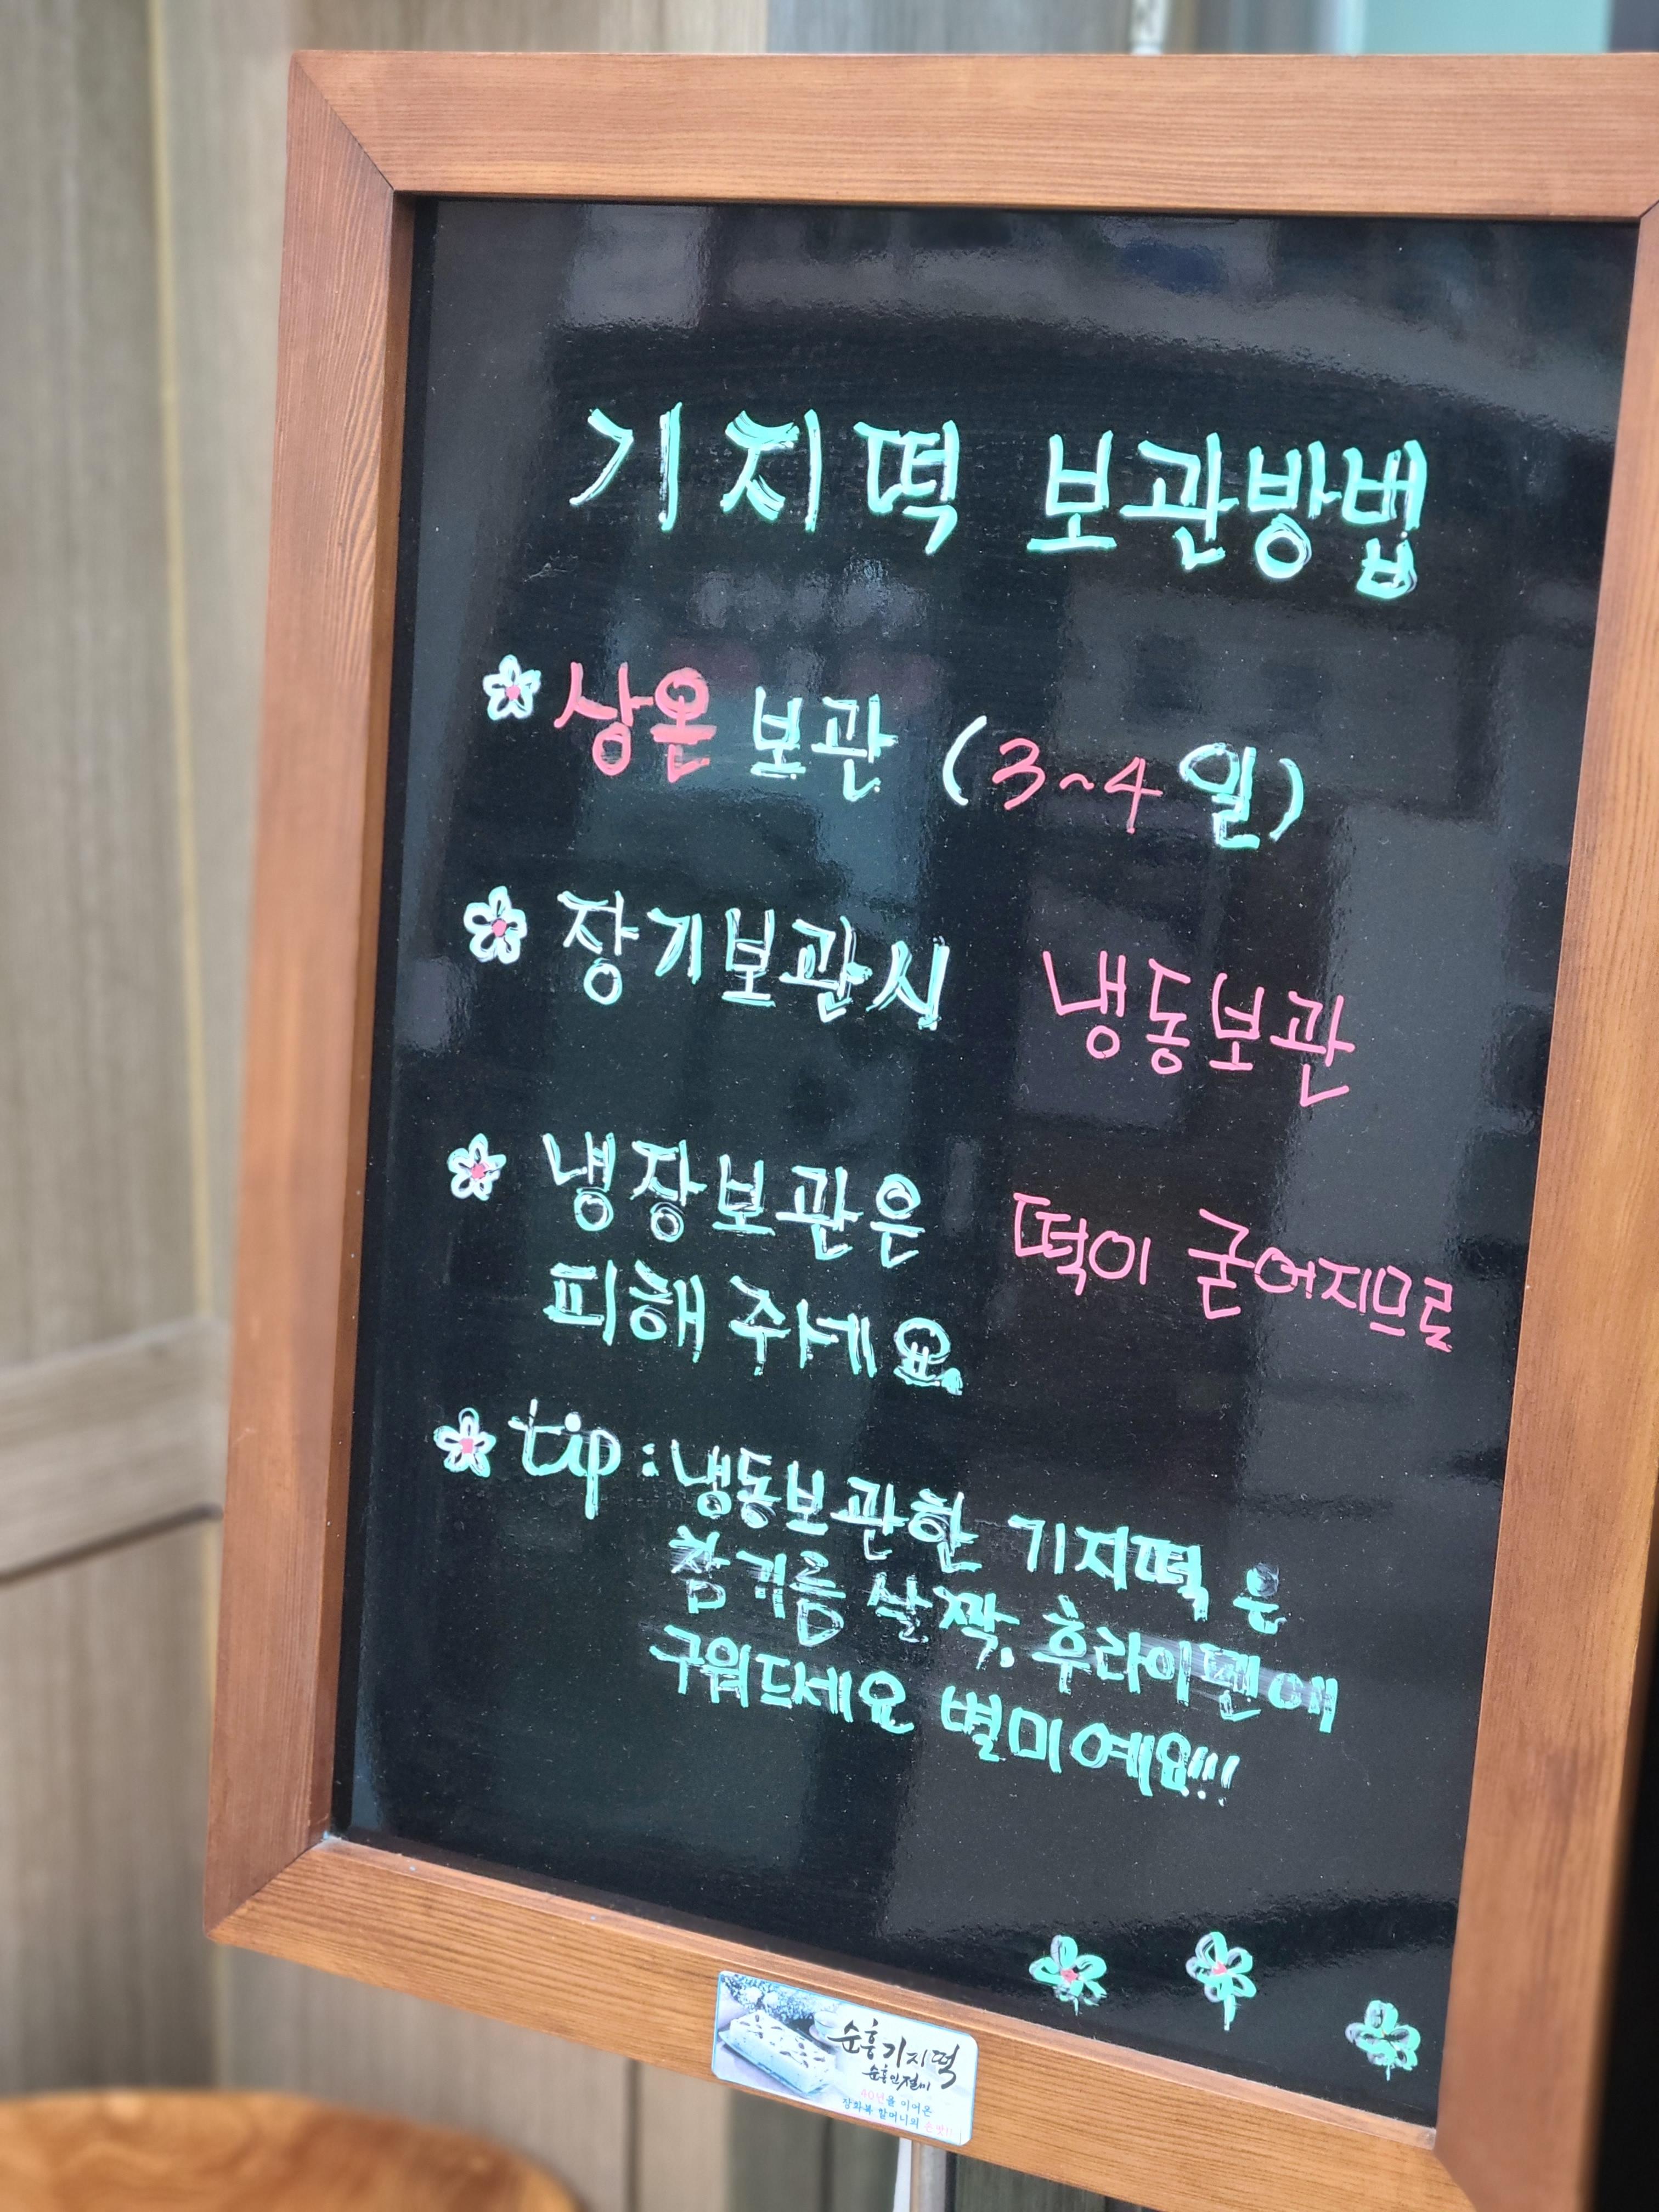 기지떡 보관방법
상온 보관 (3~4 일)
장기보관시 냉동보관
냉장보관은 떡이 굳어지므로
피해 주세요.
tip : 냉동보관한 기지떡 은
참기름 살짝, 후라이팬에
구워드세요 별미예요!!!
순흥기지떡
순흥인절미
40년을 이어온
장화복 할머니의 손맛!!